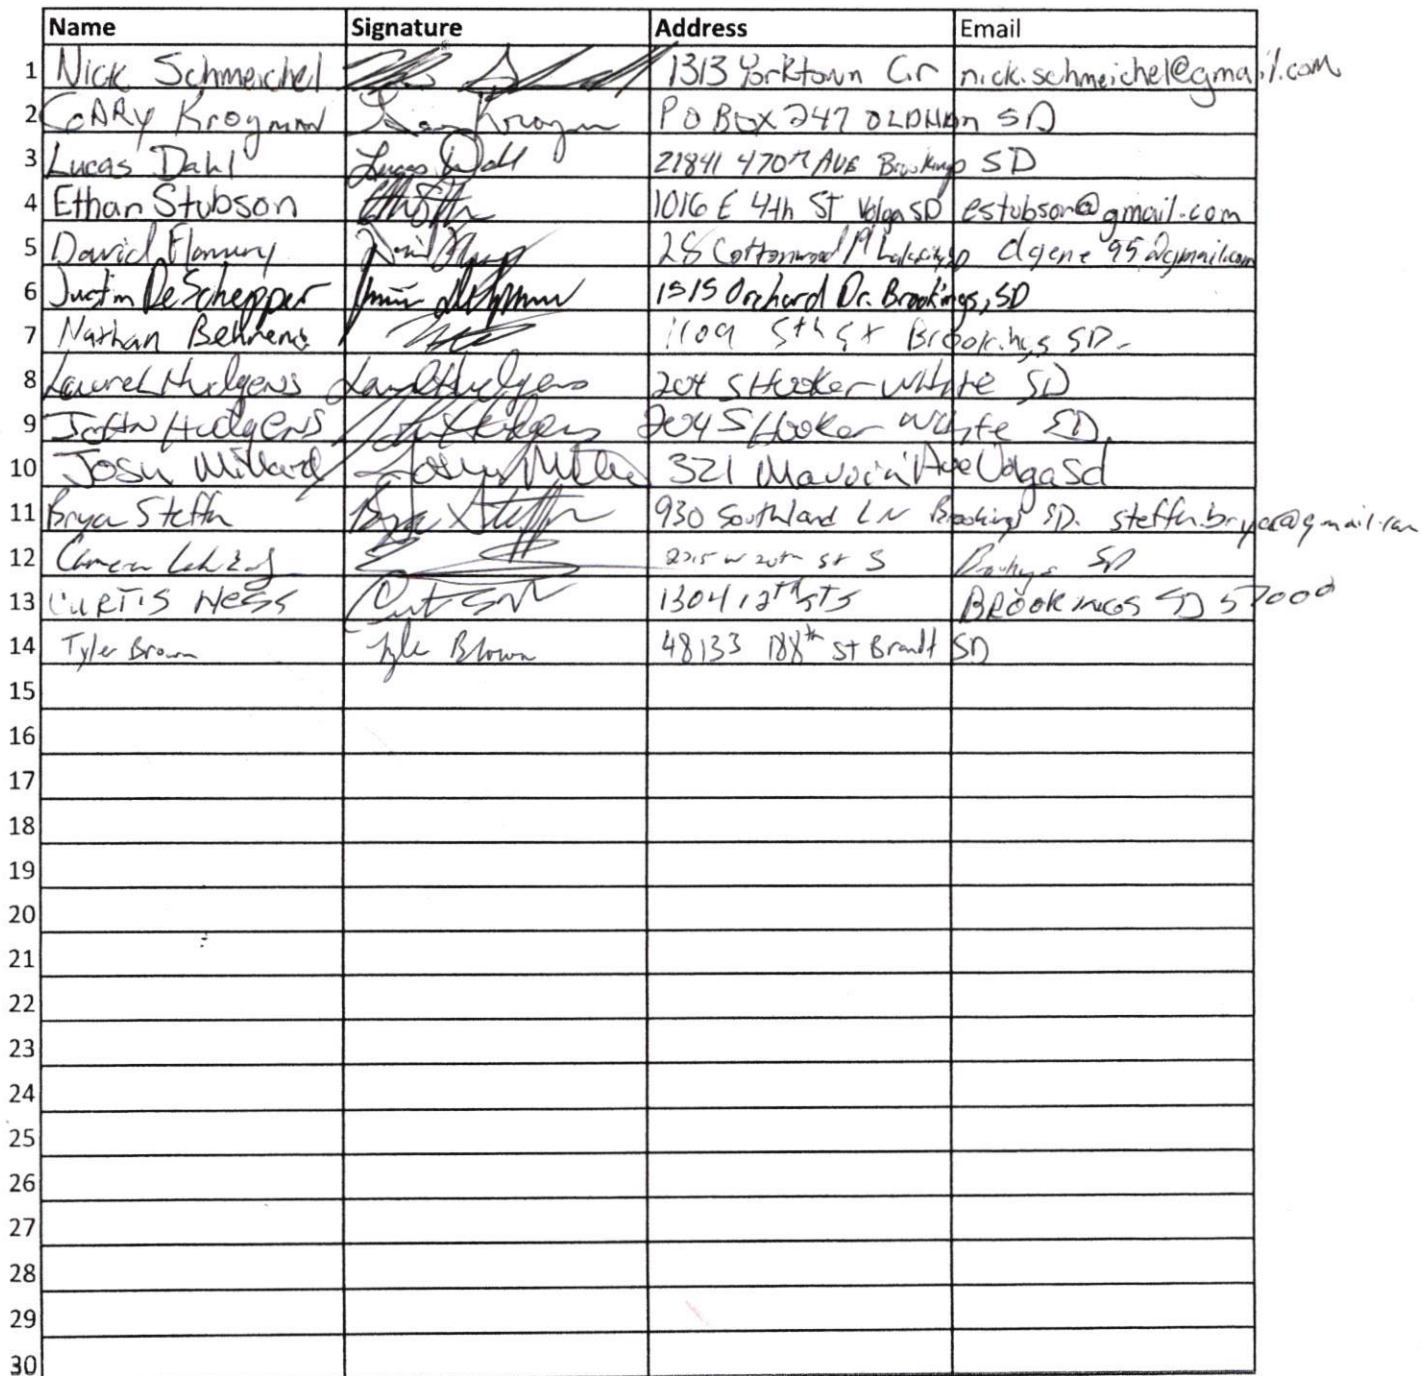 Name Signature Address Email
1 Nick Schmeichel 1313 Yorktown Cir nick.schmeichel@gmail.com
2 GARY Krogman Gary Krogman PO Box 247 OLDHAM SD
3 Lucas Dahl Lucas Dahl 21841 470th AVE Brookings SD
4 Ethan Stubson 1016 E 4th ST Volga SD estubson@gmail.com
5 David Flannery 28 Cottonwood
6 Justin DeSchepper 1515 Orchard Dr. Brookings, SD
7 Nathan Behrens 1109 5th St Brookings SD.
8 Laurel Hudgens Laurel Hudgens 204 S Hooker White SD
9 John Hudgens John Hudgens 204 S Hooker White SD.
10 Josh Millard 321 Ave Volga Sd
11 Steffen 930 Southland LN Brookings SD.
12 2215 w 20th St S Brookings SD
13 CURTIS NESS 1304 12th ST S BROOKINGS SD
14 Tyler Brown Tyler Brown 48133 188th St Brandt SD
15
16
17
18
19
20
21
22
23
24
25
26
27
28
29
30